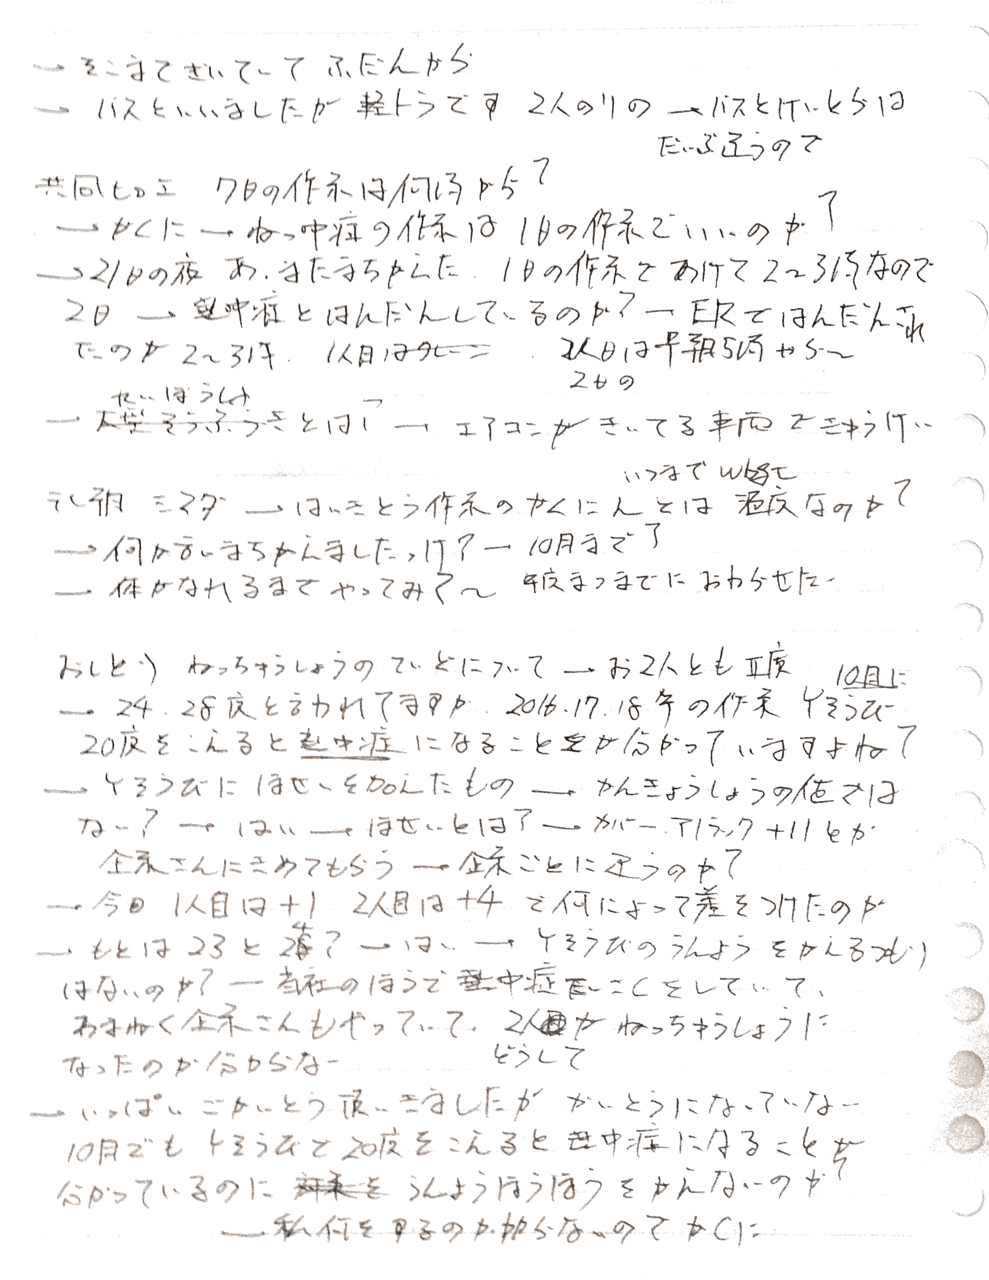 →そこまできいていて ふだんから
→ バスといいましたが 軽トラです 2人のりの →バスとけいとらは
だいぶ違うので
共同ヒロエ 7日の作業は何時から?
→かくに→ねっ中症の作業は 1日の作業でいいのか?
→21日の夜 あ、まだまちがえた、1日の作業であけて2〜3時なので
2日 → 熱中症とはんだんしているのか?→ERではんだんされ
たのが2〜3時、1人目は 2人目は早朝5時から〜
2日の
せいぼうしつ
→ とは?→エアコンがきいてる車両できゅうけい
いつまで WBGT
テレ朝 ミマダ →はいきとう作業のかくにんとは 温度なのか?
→何か言いまちがえましたっけ?→10月まで?
→体がなれるまでやってみて〜 年度まつまでにおわらせたい
おしどり ねっちゅうしょうのていどについて→お2人ともⅡ度 10月に
→24、28度と言われてますが、2016.17.18年の作業 Yぞうび
20度をこえると熱中症になることが分かっていますよね?
→Yぞうびにほせいを加えたもの→かんきょうしょうの値では
ない?→はい→ほせいとは?→カバーオール +11とか
企業さんにきめてもらう→企業ごとに違うのか?
→今日 1人目は+1 2人目は+4 で何によって差をつけたのか
→もとは23と24?→はい→Yぞうびのうんようをかえるつもり
はないのか?→当社のほうで熱中症たいさくをしていて、
あまねく企業さんもやっていて、2人が ねっちゅうしょうに
どうして
なったのか分からない
→いっぱいごかいとう頂きましたが かいとうになっていない
10月でもYぞうびで20度をこえると熱中症になることが
分かっているのに うんようほうほうをかえないのか?
→私何をするのか分からないのでかくに